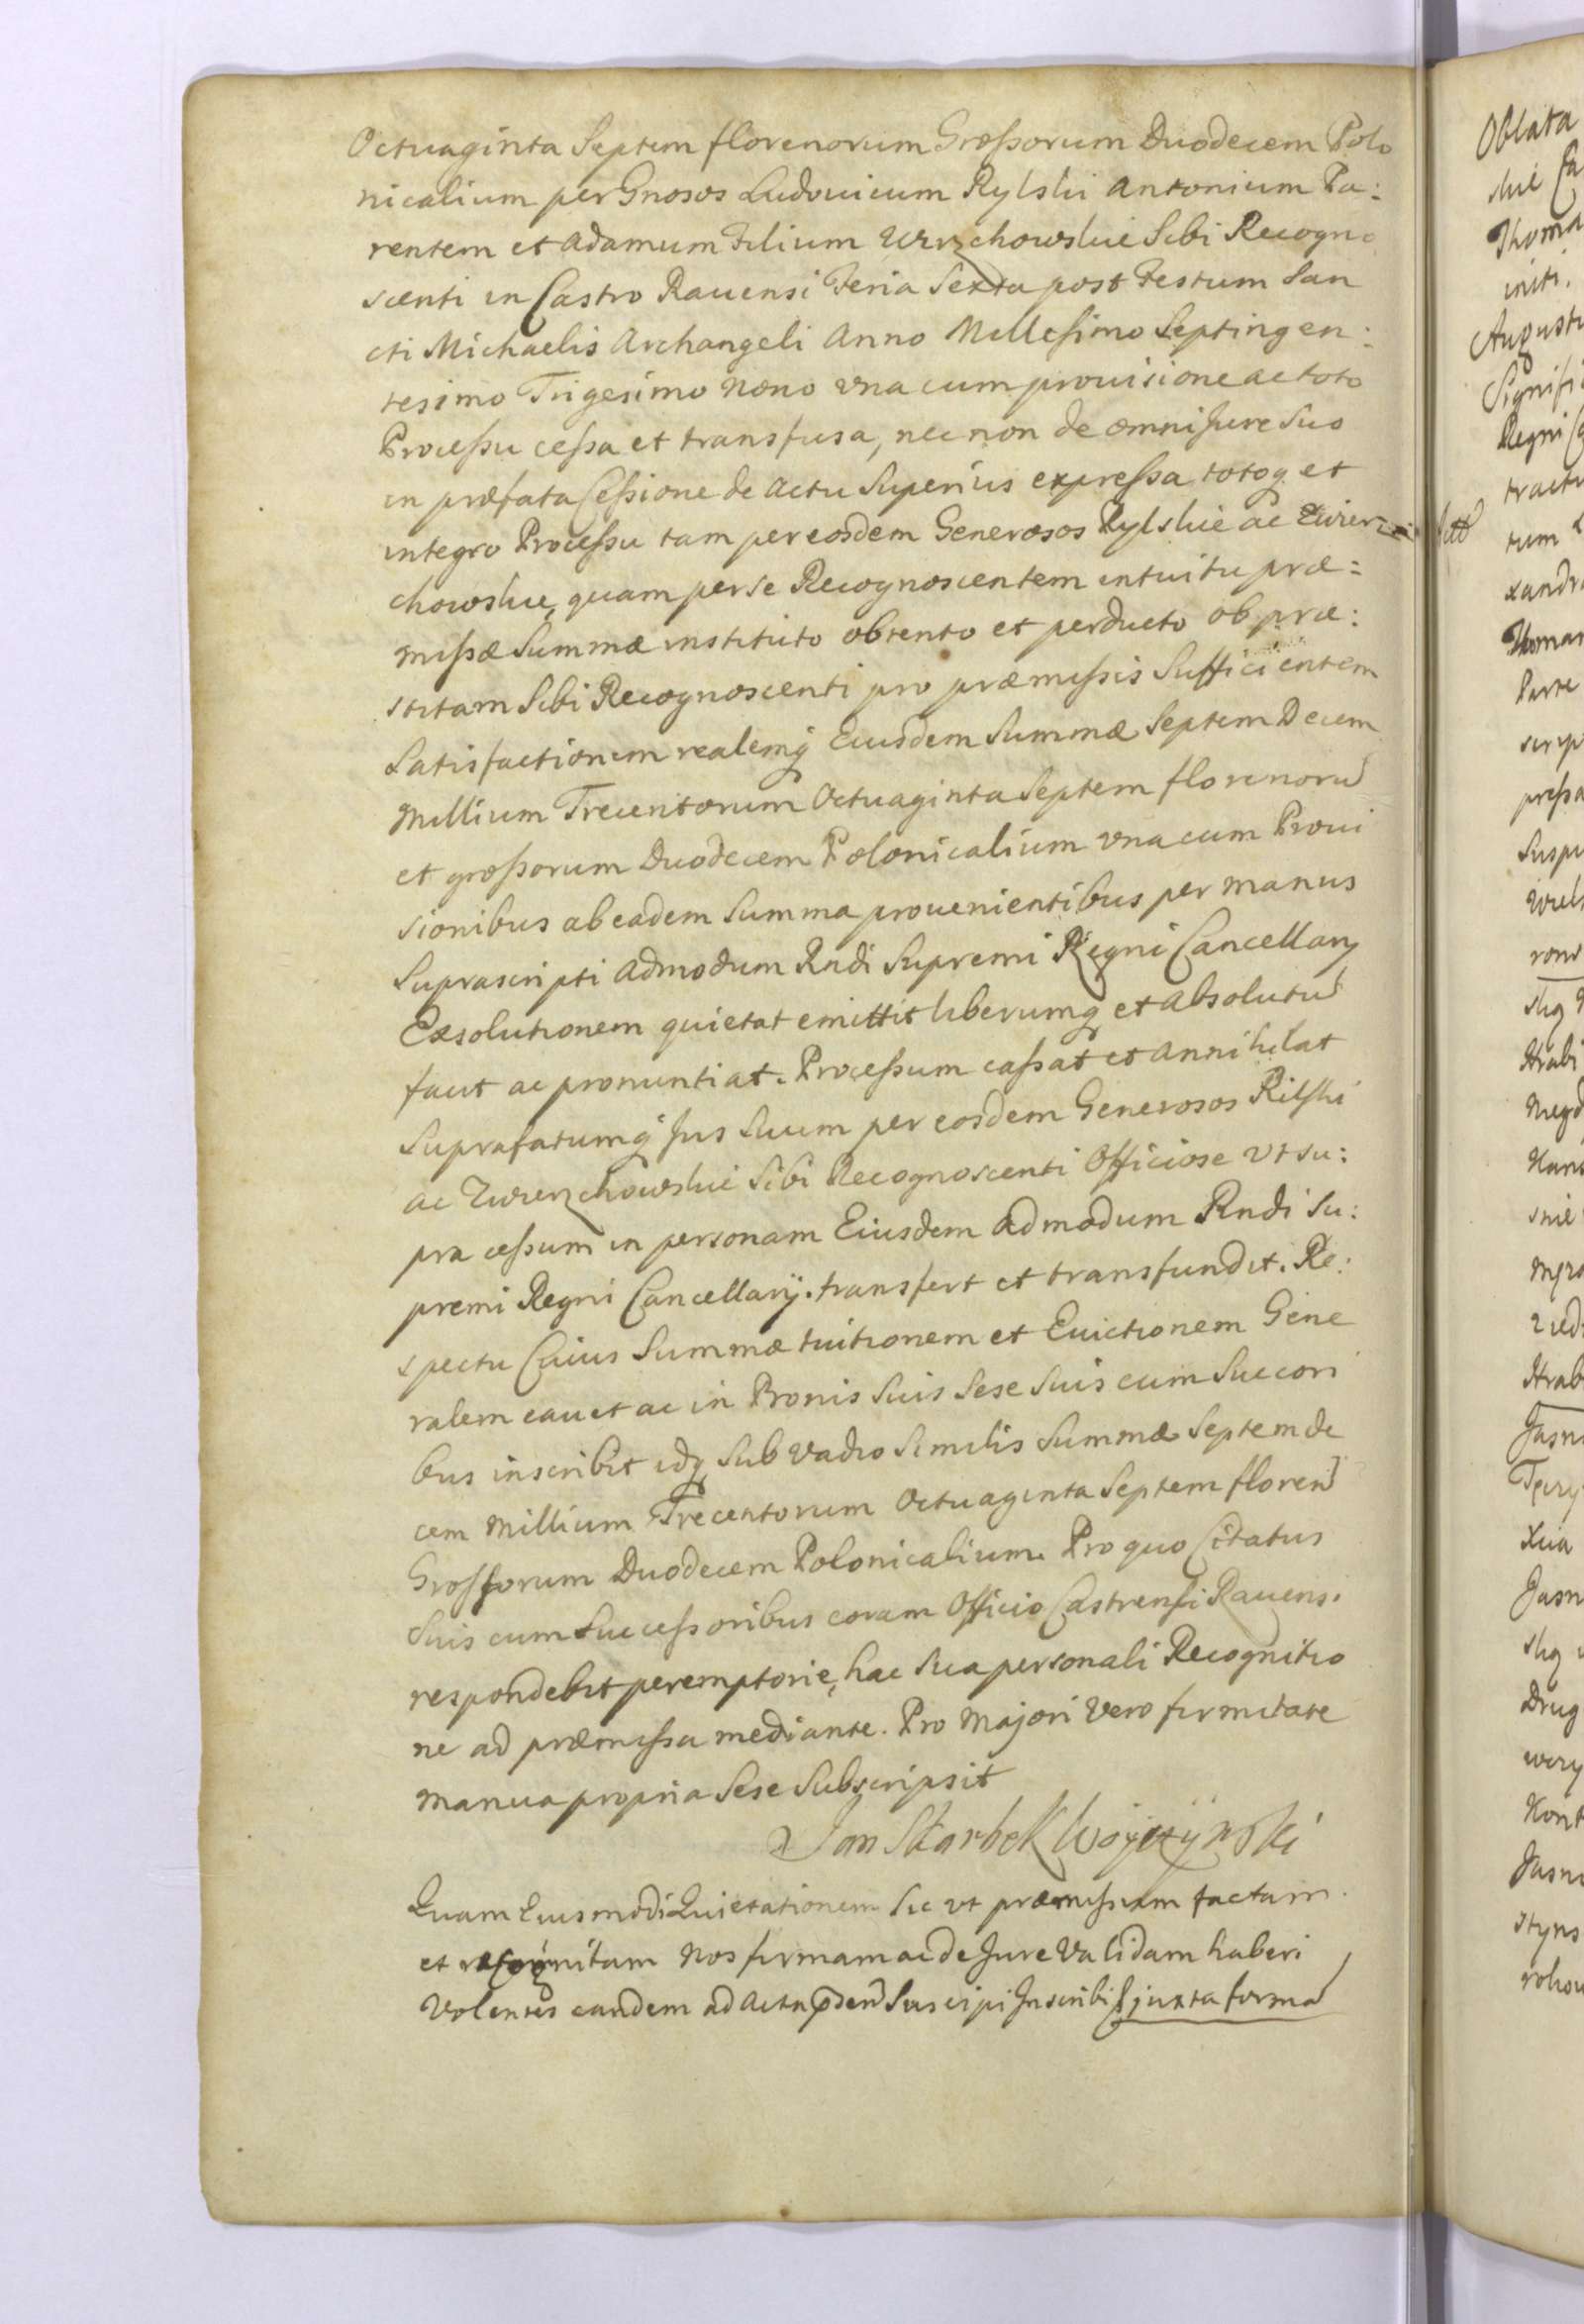 Octuaginta Septem florenorum Großorum Duodecem Polo
nicalium per Gnosos Ludouicum Rylski Antonium Pa:
rentem et Adamum Filium Wirzchowskie Sibi Recogno
scenti in Castro Rauensi Feria Sexta post Festum San
cti Michaelis Archangeli Anno Millesimo Septingen:
tesimo Trigesimo Nono vna cum prouisione ac toto
Processu cessa et transfusa, nec non de omni Jure Suo
in præfata Cessione de Actu Superius expressa totoq et
integro Processu tam per eosdem Generosos Rylskie ac Zwierz
chowskie, quam per se Recognoscentem intuitu præ=
missæ Summæ instituto obtento et perducto ob præ:
stitam Sibi Recognoscenti pro præmissis Sufficientem
Satisfactionem realemq Eiusdem Summæ Septem Decem
Millium Trecentorum Octuaginta Septem florenoru
et großorum Duodecem Polonicalium vna cum Proui
sionibus ab eadem Summa prouenientibus per manus
Suprascripti Admodum Rndi Supremi Regni Cancellarij
Exsolutionem quietat emittit liberumq et Absolutu
facit ac pronuntiat. Processum cassat et Annihilat
Suprafatumq Jus Suum per eosdem Generosos Rilski
ac Zwierzchowskie Sibi Recognoscenti Officiose vt su:
pra cessum in personam Eiusdem Admodum Rndi Su:
premi Regni Cancellarij. transfert et transfundit. Re:
spectu Cuius Summæ tuitionem et Euictionem Gene
ralem cauet ac in Bonis Suis Sese Suis cum Succori
bus inscribit idq Sub Vadio Similis Summæ Septem de
cem Millium Trecentorum Octuaginta Septem floren
Grossorum Duodecem Polonicalium. Pro quo Citatus
Suis cum Successoribus coram Officio Castrensi Rauensi
respondebit peremptorie, hac Sua personali Recognitio
ne ad præmissa mediante. Pro Majori Vero firmitate
manu propria Sese Subscripsit
Jan Skarbek Woyczyński
Quam Eiusmodi Quietationem Sic vt præmissum factam
et recognitam Nos firmam ac de Jure Validam haberi
Volentes eandem ad Acta Suscipi Inscribi juxta forma